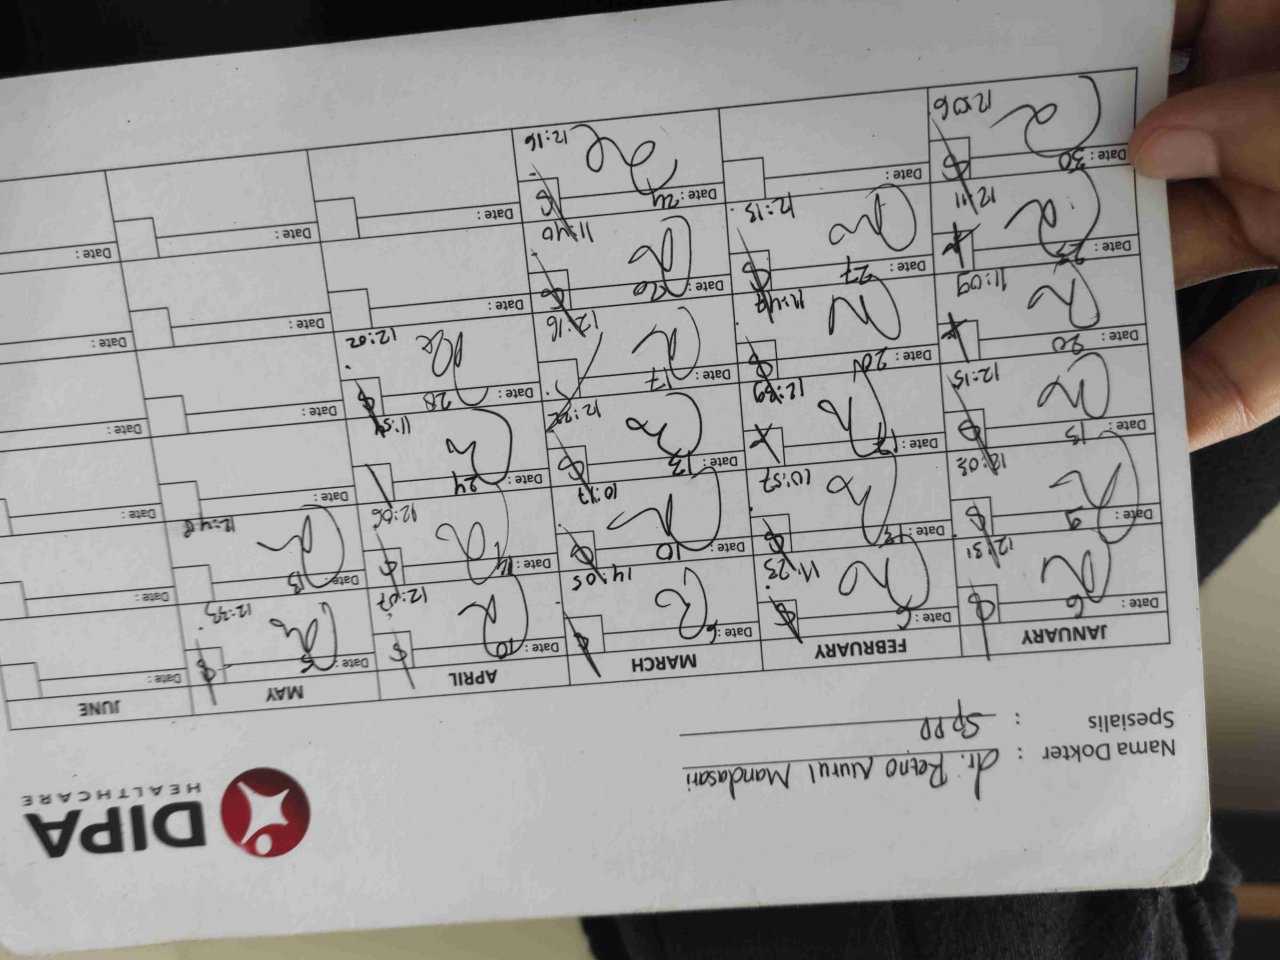 DIPA
HEALTHCARE
Nama Dokter : dr. Retno Nurul Mandasari
Spesialis : SpPD
JANUARY FEBRUARY MARCH APRIL MAY JUNE
Date: 6 Date: 6 Date: 6 Date: 10 Date: 5 Date:
12:31 11:23 14:05 12:07
Date: 9 Date: Date: 10 Date: 14 Date: 13 Date:
10:57 10:17 12:06 12:48
Date: 13 Date: 17 Date: 13 Date: 24 Date: Date:
12:15 12:22 11:54
Date: 20 Date: 20 Date: 17 Date: 28 Date: Date:
11:09 12:16 12:02
Date: Date: 27 Date: 20 Date: Date: Date:
12:11 12:13 11:40
Date: 30 Date: Date: 24 Date: Date: Date:
12:06 12:16